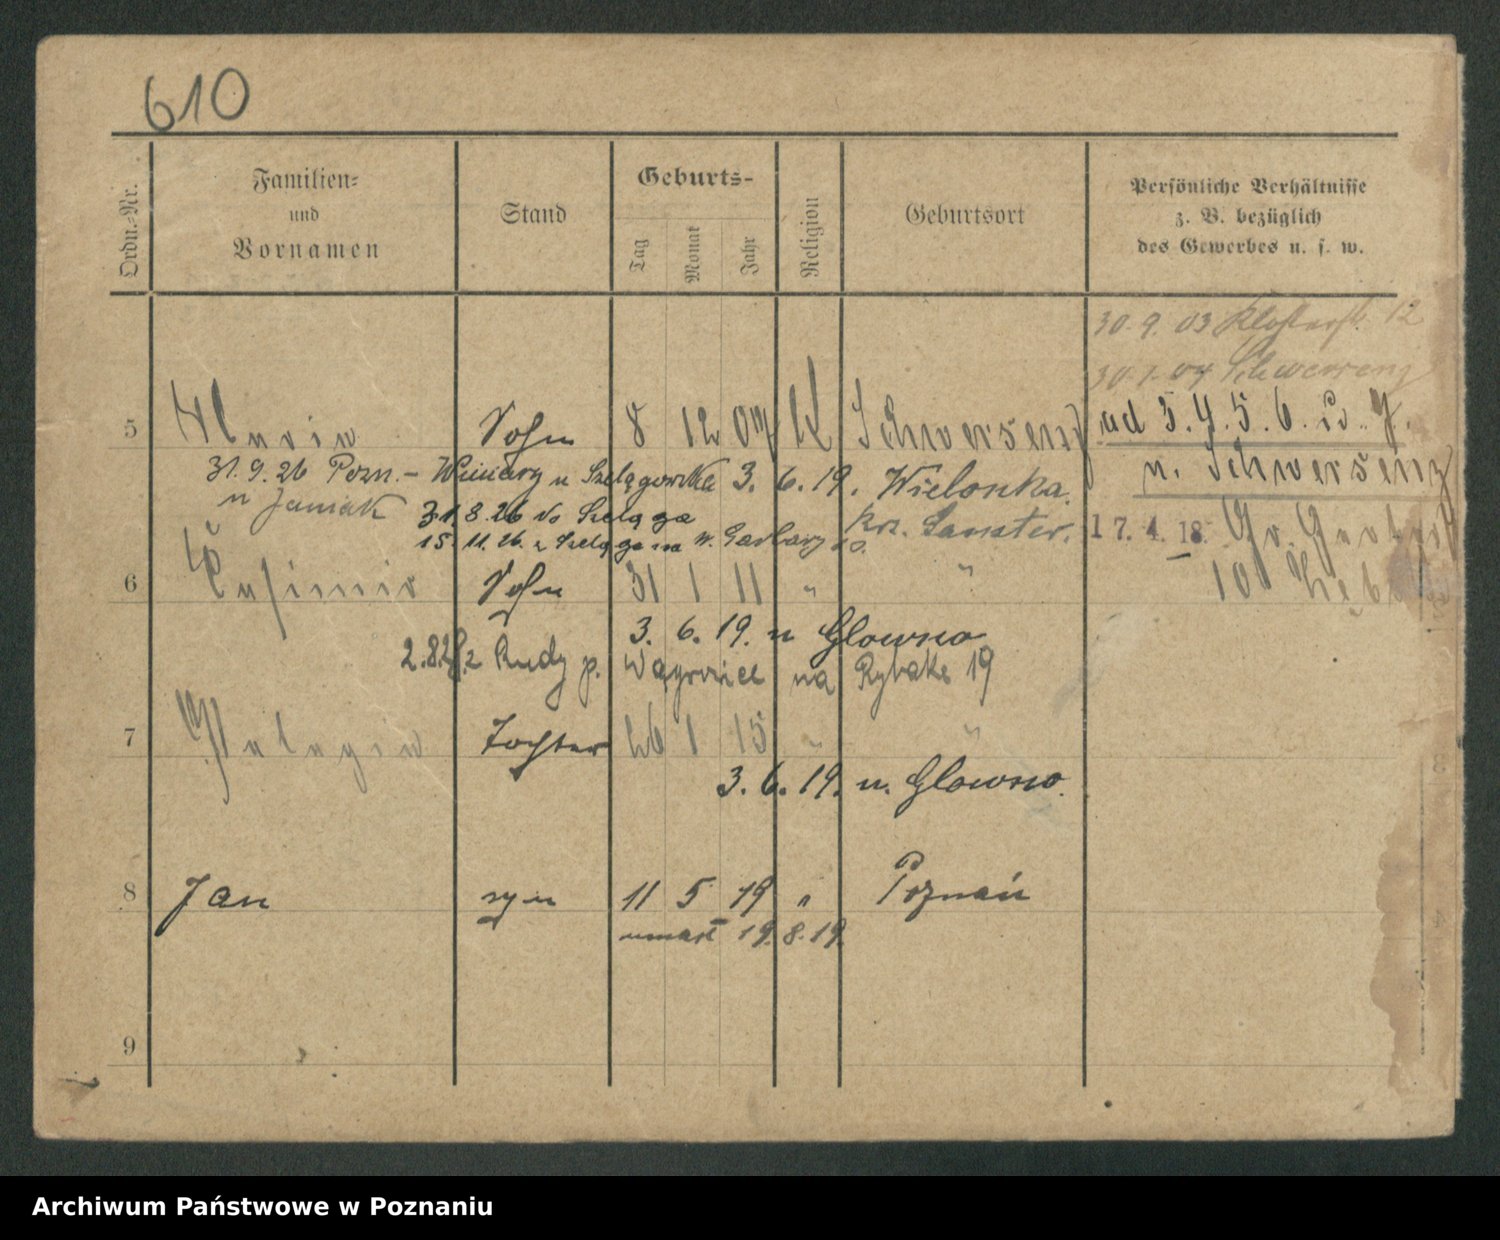 610
Ordn.-Nr.
Familien-
und
Vornamen
Stand
Geburts-
Tag
Monat
Jahr
Religion
Geburtsort
Persönliche Verhältnisse
z. B. bezüglich
des Gewerbes u. s. w.
30. 9. 03 Klosterst. 12
30. 1. 04 Schwersenz
5 Sohn 8 12 K Schwersenz ad 3. 4. 5. 6. 7.
n. Schwersenz
31. 9. 26 Pozn. - Winiary u Szelągowska 3. 6. 19. Wielonka.
u Janiak
31. 8. 26 do Szeląga
15. 11. 26. z Szeląga na W. Garbary
17. 4. 18. Gr.
10
6 Casimir Sohn 31 1 11 " "
3. 6. 19. n Glowno
2.8.28. z Rudy p. Wągrowiec na Rybaki 19
7 Pelagia Tochter 26 1 15 " "
3. 6. 19. n. Glowno.
8 Jan syn 11 5 19 " Poznań
umarł 19. 8. 19.
9
Archiwum Państwowe w Poznaniu